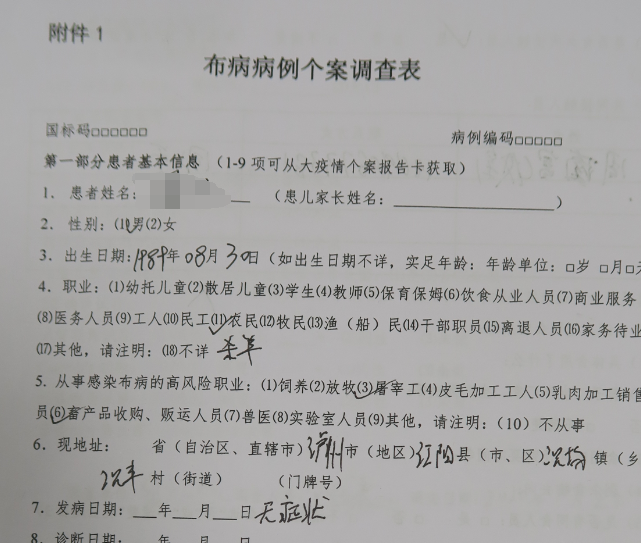 附件 1
布病病例个案调查表
国标码□□□□□□
病例编码□□□□□
第一部分患者基本信息 (1-9 项可从大疫情个案报告卡获取)
1. 患者姓名: (患儿家长姓名: )
2. 性别: ⑴男⑵女
3. 出生日期: 1989年 08月 30日 (如出生日期不详, 实足年龄: 年龄单位: □岁 □月□
4. 职业: ⑴幼托儿童⑵散居儿童⑶学生⑷教师⑸保育保姆⑹饮食从业人员⑺商业服务
⑻医务人员⑼工人⑽民工⑾农民⑿牧民⒀渔(船)民⒁干部职员⒂离退人员⒃家务待业
⒄其他, 请注明: ⒅不详 杀羊
5. 从事感染布病的高风险职业: (1)饲养(2)放牧(3)屠宰工(4)皮毛加工工人(5)乳肉加工销售
员(6)畜产品收购、贩运人员(7)兽医(8)实验室人员(9)其他, 请注明: (10) 不从事
6. 现地址: 省(自治区、直辖市)泸州市(地区)江阳县(市、区) 镇(乡
村(街道) (门牌号)
7. 发病日期: 年 月 日 无症状
8. 诊断日期: 年 月 日